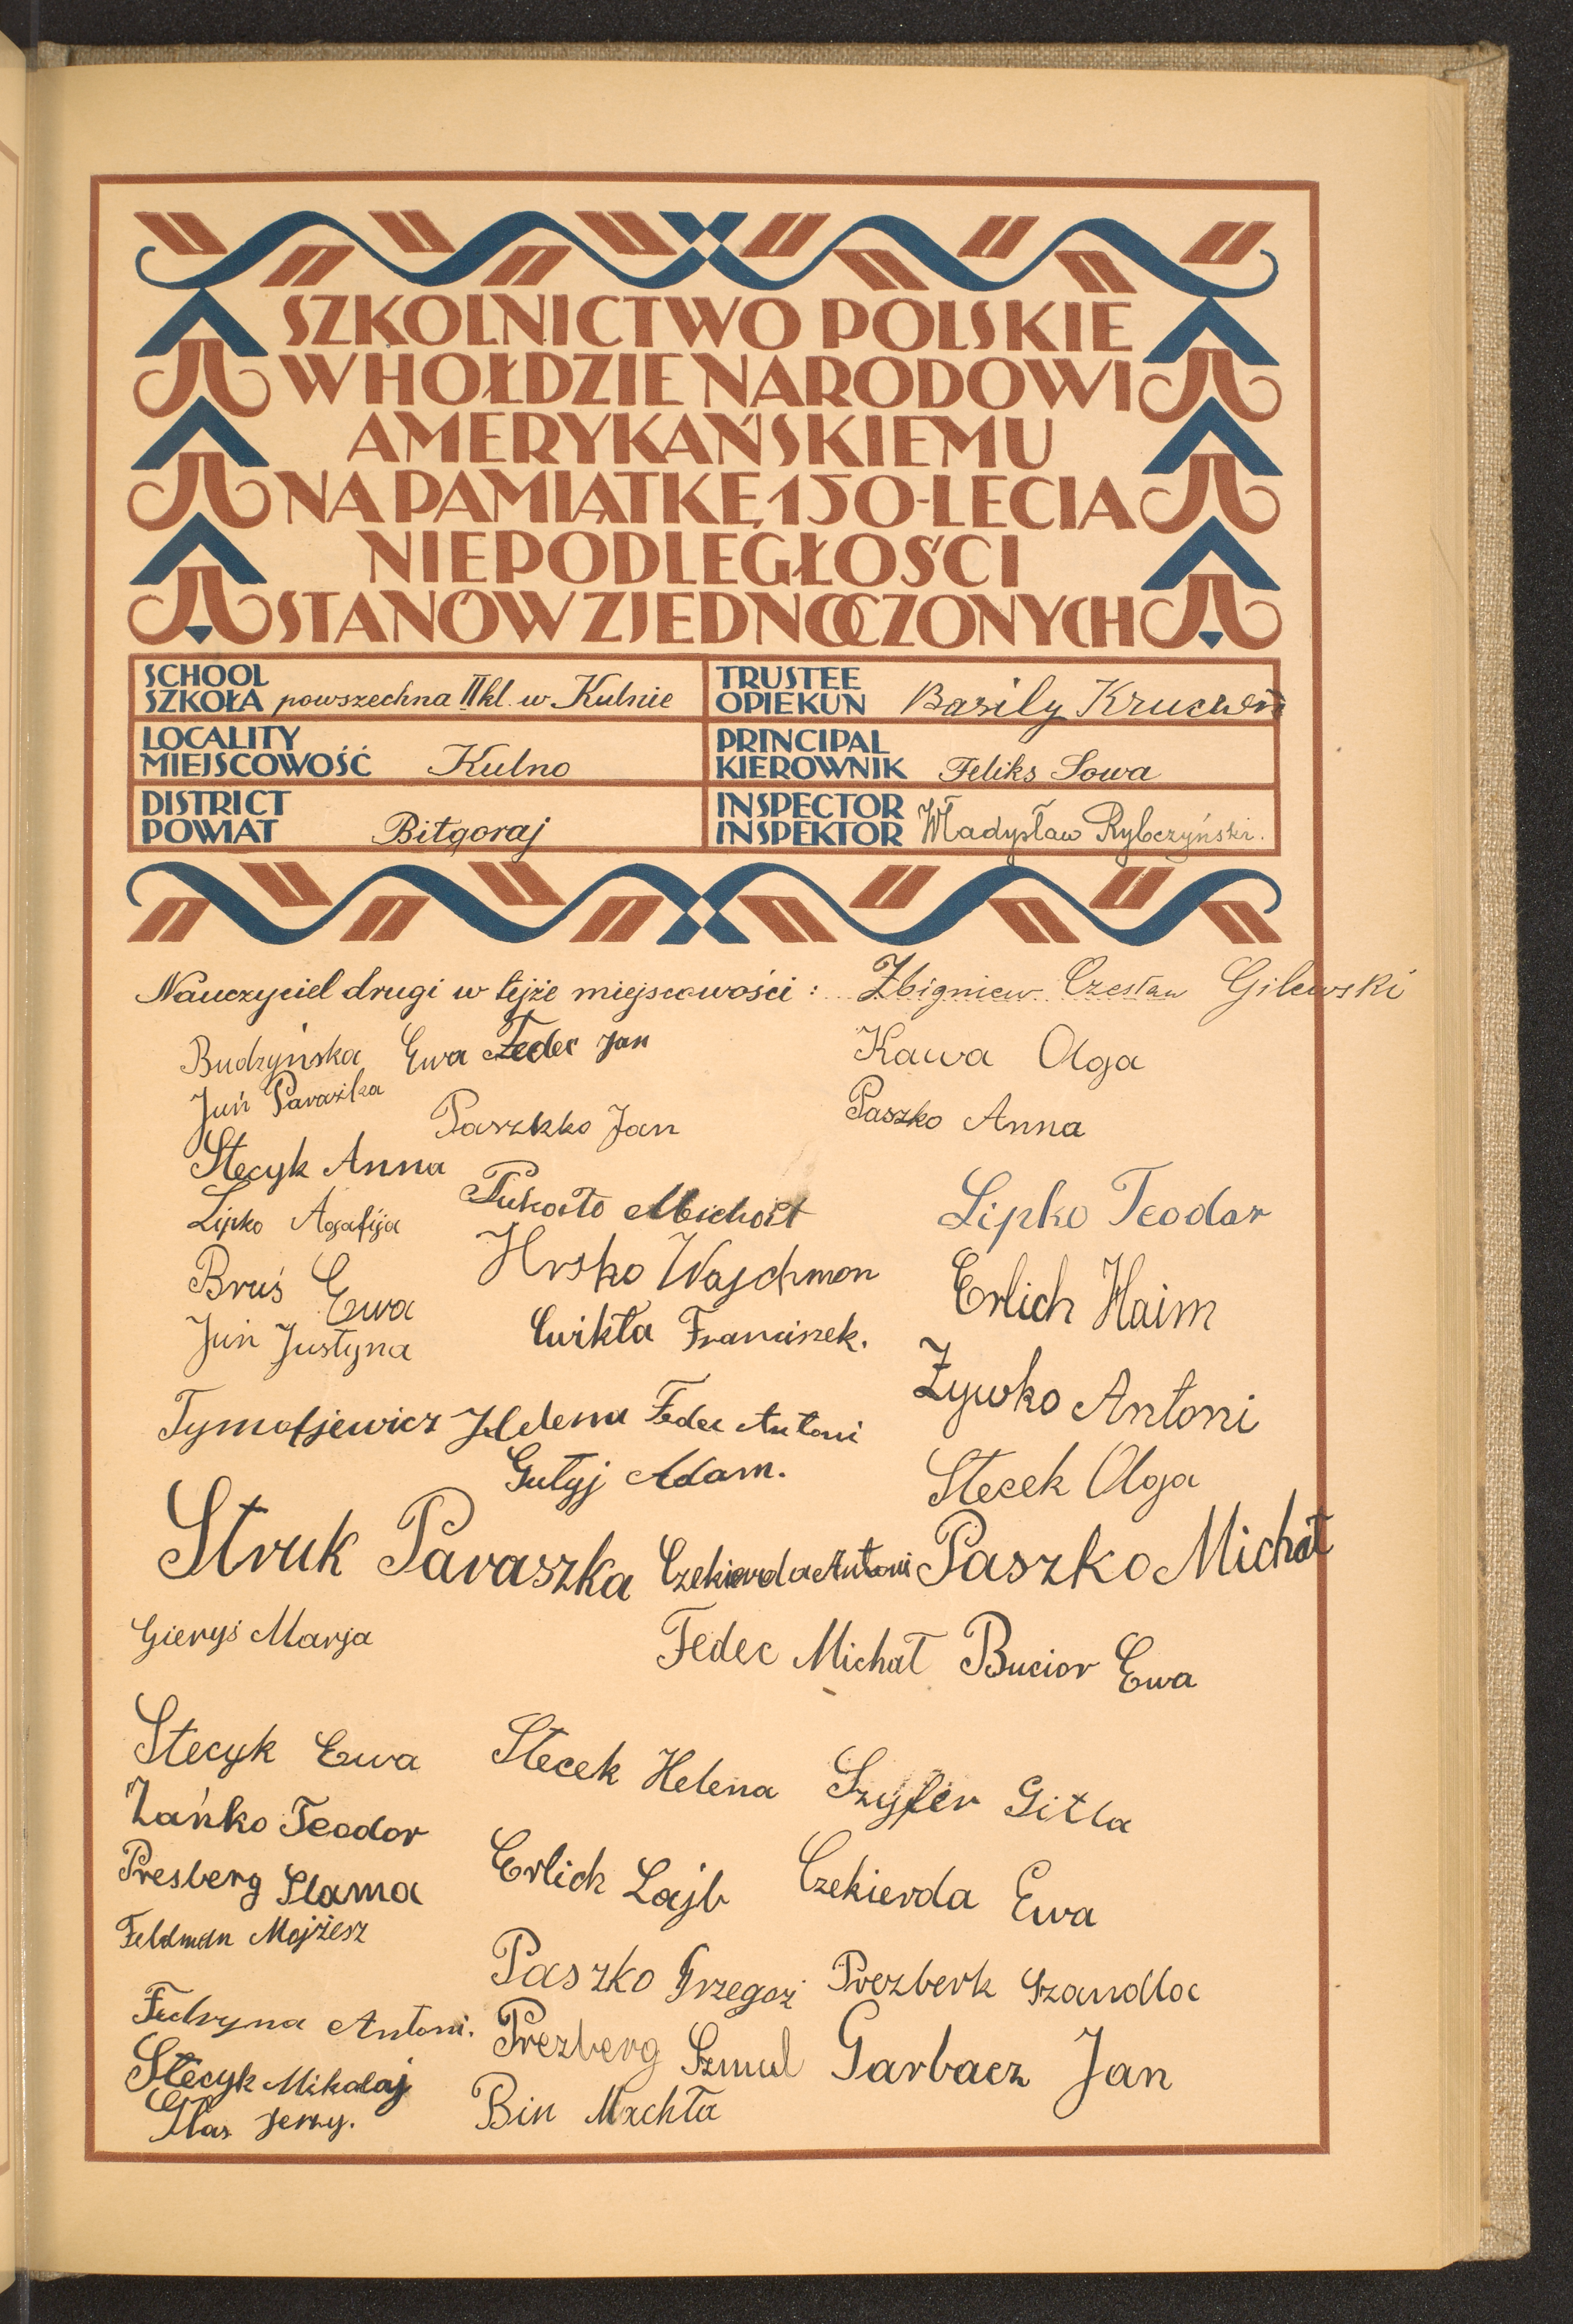 SZKOLNICTWO POLSKIE
W HOŁDZIE NARODOWI
AMERYKAŃSKIEMU
NA PAMIĄTKĘ 150-LECIA
NIEPODLEGŁOŚCI
STANÓW ZJEDNOCZONYCH
SCHOOL
SZKOŁA powszechna II kl. w Kulnie
TRUSTEE
OPIEKUN Basily
LOCALITY
MIEJSCOWOŚĆ Kulno
PRINCIPAL
KIEROWNIK Feliks Sowa
DISTRICT
POWIAT Biłgoraj
INSPECTOR
INSPEKTOR Władysław Rybczyński.
Nauczyciel drugi w tejże miejscowości: Zbigniew Czesław Gilewski
Budzyńska Ewa Fedec Jan Kawa Olga
Juń Paraśka Paszkko Jan Paszko Anna
Stecyk Anna
Lipko Agafija Pukało Michał Lipko Teodor
Bruś Ewa Hrsko Wajchman Erlich Haim
Juń Justyna Ćwikła Franciszek.
Tymofjewicz Helena Fedec Antoni Żywko Antoni
Gułyj Adam. Stecek Olga
Struk Paraszka Czekierda Antoni Paszko Michał
Gieryś Marja Fedec Michał Bucior Ewa
Stecyk Ewa Stecek Helena Szyfer Gitla
Zańko Teodor
Presberg Slama Erlich Lajb Czekierda Ewa
Feldman Mojżesz
Paszko Grzegoż Prezberk Szandla
Fedryna Antoni. Prezberg Szmul Garbacz Jan
Stecyk Mikołaj
Bin Machla
Głas Jerzy.